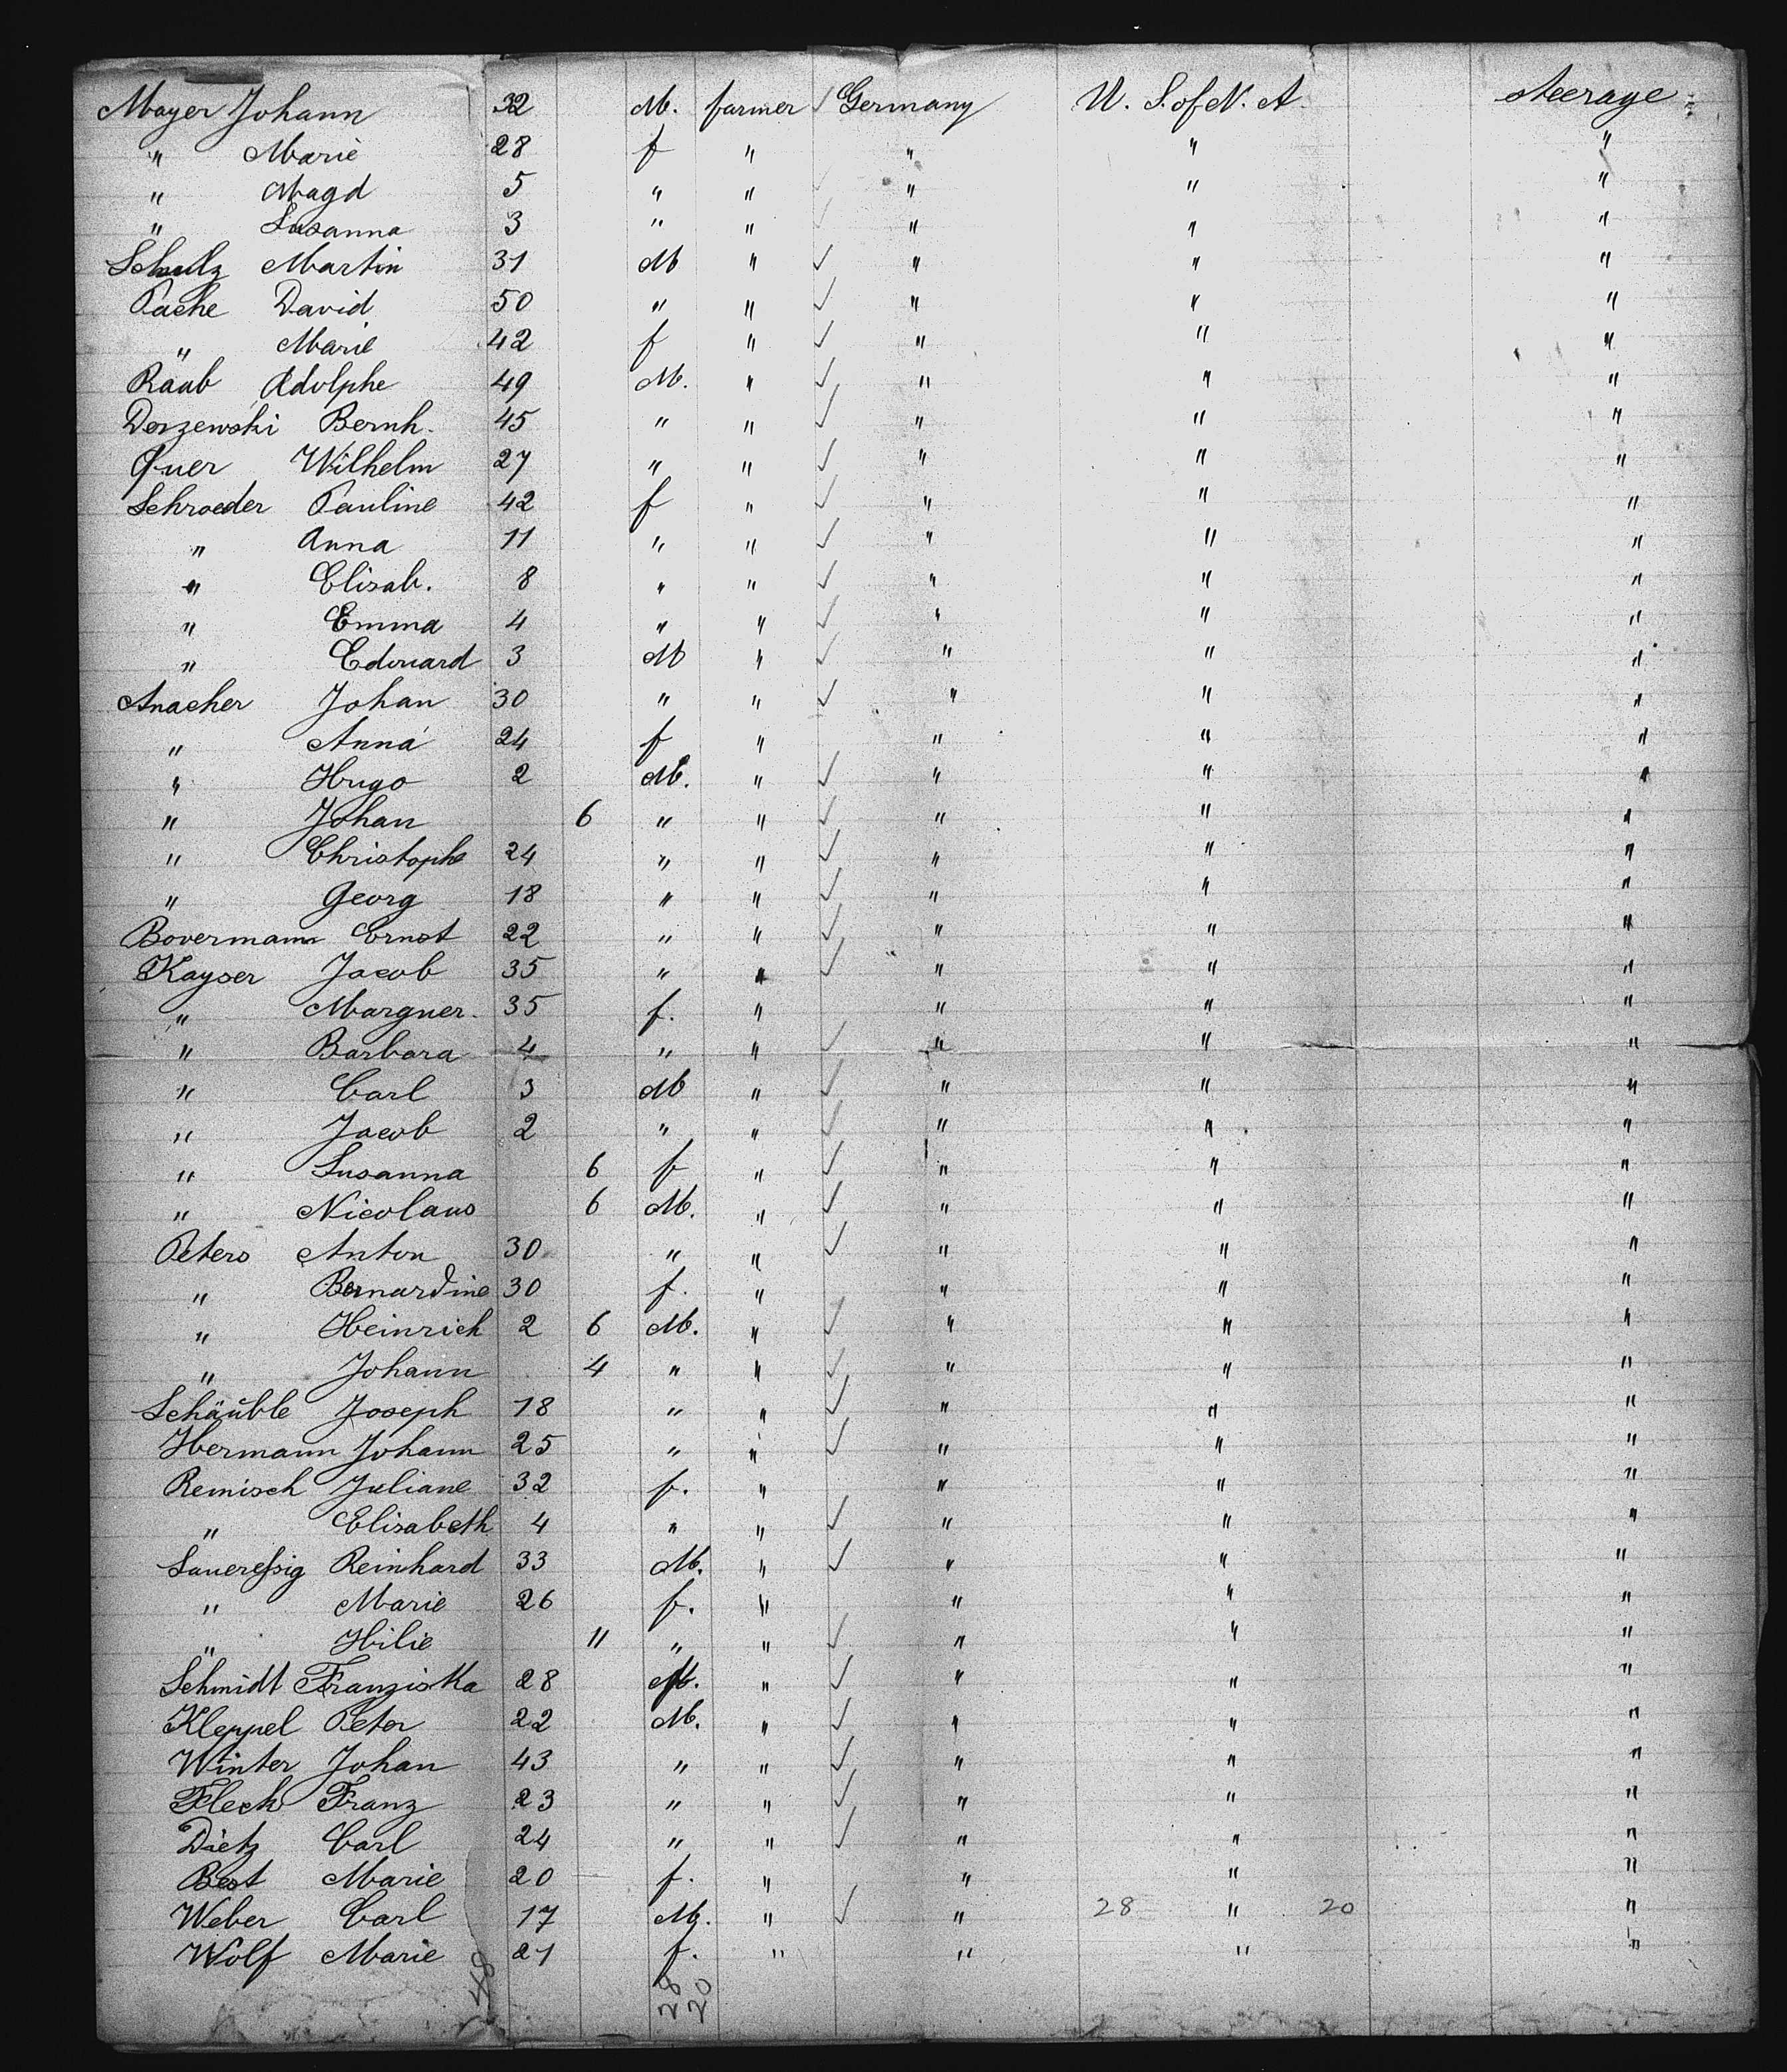 Mayer Johann 32 M. farmer ✓ Germany U. S. of N. A. Steerage
" Marie 28 f " " " "
" Magd 5 " " ✓ " " "
" Susanna 3 " " ✓ " " "
Schulz Martin 31 M " ✓ " " "
Pache David 50 " " ✓ " " "
" Marie 42 f " ✓ " " "
Raab Adolphe 49 M. " ✓ " " "
Derzewski Bernh. 45 " " ✓ " " "
Wilhelm 27 " " ✓ " " "
Schroeder Pauline 42 f " ✓ " " "
" Anna 11 " " ✓ " " "
" Elisab. 8 " " ✓ " " "
" Emma 4 " " ✓ " " "
" Edouard 3 M " ✓ " " "
Anacher Johan 30 " " ✓ " " "
" Anna 24 f " " " "
" Hugo 2 M. " ✓ " " "
" Johan 6 " " ✓ " " "
" Christophe 24 " " ✓ " " "
" Georg 18 " " ✓ " " "
Bovermann Ernst 22 " " ✓ " " "
Kayser Jacob 35 " " ✓ " " "
" Marguer. 35 f. " " " "
" Barbara 4 " " ✓ " " "
" Carl 3 M " ✓ " " "
" Jacob 2 " " ✓ " " "
" Susanna 6 f " ✓ " " "
" Nicolaus 6 M. " ✓ " " "
Peters Anton 30 " " ✓ " " "
" Bernardine 30 f. " " " "
" Heinrich 2 6 M. " ✓ " " "
" Johann 4 " " ✓ " " "
Schäuble Joseph 18 " " ✓ " " "
Hermann Johann 25 " " ✓ " " "
Remisch Juliane 32 f. " " " "
" Elisabeth 4 " " ✓ " " "
Sauereſsig Reinhard 33 M. " ✓ " " "
" Marie 26 f. " " " "
" Hilie 11 " " ✓ " " "
Schmidt Franziska 28 " ✓ " " "
Kleppel Peter 22 M. " ✓ " " "
Winter Johan 43 " " ✓ " " "
Fleck Franz 23 " " ✓ " " "
Dietz Carl 24 " " ✓ " " "
Best Marie 20 f. " " " "
Weber Carl 17 M. " ✓ " 28 " 20 "
Wolf Marie 21 f. " " " "
48 28 20